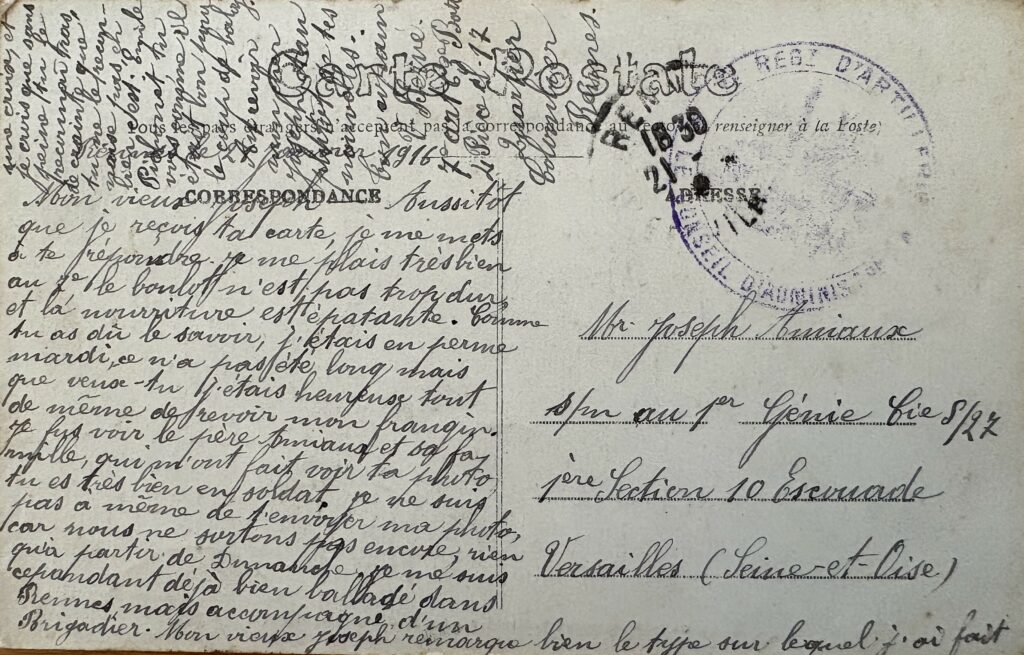 Carte Postale
Tous les pays étrangers n'acceptent pas la correspondance au recto. (Se renseigner à la Poste)
CORRESPONDANCE
ADRESSE
RENNES
18 30
21
VILAINE
REGt D'ARTILLERIE
LE CONSEIL D'ADMINIST
1916
Mon vieux Joseph Aussitôt
que je reçois ta carte, je me mets
à te répondre. Je me plais très bien
au 7e le boulot n'est pas trop dur
et la nourriture est épatante. Comme
tu as dû le savoir, j'étais en perme
mardi, ce n'a pas été long mais
que veux-tu j'étais heureux tout
de même de revoir mon frangin.
Je fus voir le père Amiaux et sa fa-
mille, qui m'ont fait voir ta photo,
tu es très bien en soldat, je ne suis
pas à même de t'envoyer ma photo,
car nous ne sortons pas encore, rien
qu'à partir de Dimanche, je me suis
cependant déjà bien balladé dans
Rennes, mais accompagné d'un
Brigadier. Mon vieux Joseph remarque bien le type sur lequel j'ai fait
une croix et
je crois que sans
peine tu le
reconnaitras,
de crainte que
tu ne le recon-
naisse pas, eh
bien c'est Emile
vous
le coup de
nouvelles.
7e
2e Pièce
Quartier
Colombier
Rennes.
Mr Joseph Amiaux
s/m au 1er Génie Cie S/27
1ère Section 10 Escouade
Versailles (Seine-et-Oise)